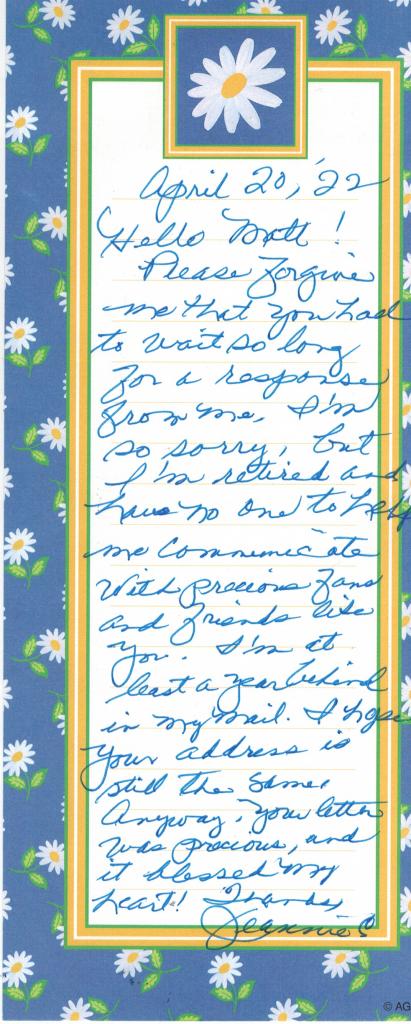 April 20, '22
Hello Matt!
Please forgive
me that you had
to wait so long
for a response
from me. I'm
so sorry, but
I'm retired and
have no one to help
me communicate
with precious fans
and friends like
you. I'm at
least a year behind
in my mail. I hope
your address is
still the same.
Anyway, your letter
was precious, and
it blessed my
heart! Thanks,
Jeannie C
© AG